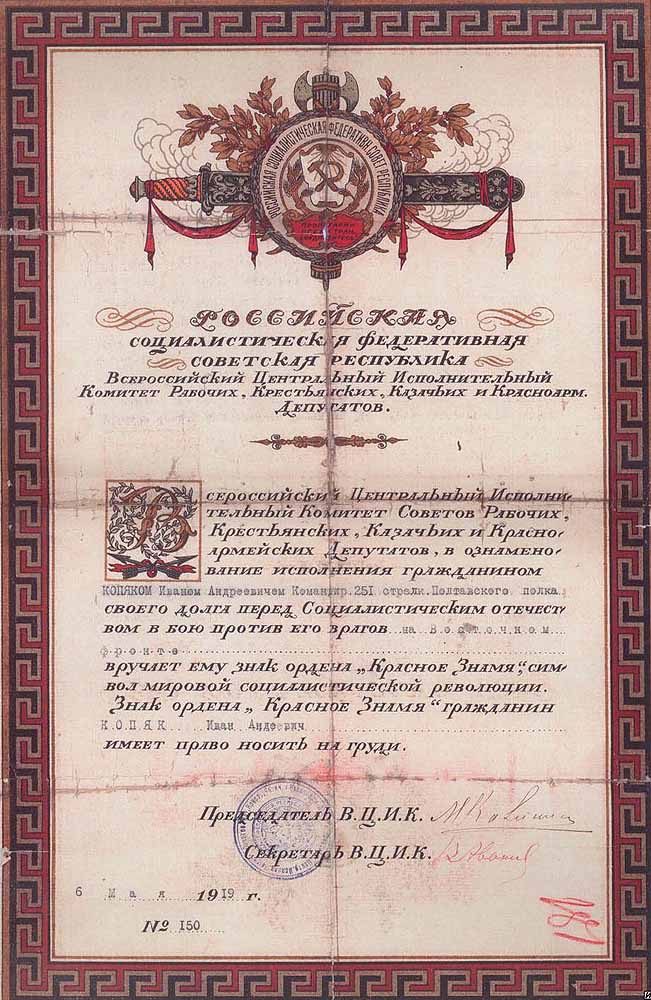 РОССИЙСКАЯ СОЦИАЛИСТИЧЕСКАЯ ФЕДЕРАТИВН. СОВЕТ. РЕСПУБЛИКА
ПРОЛЕТАРИИ
ВСЕХ СТРАН
РОССИЙСКАЯ
СОЦИАЛИСТИЧЕСКАЯ ФЕДЕРАТИВНАЯ
СОВЕТСКАЯ РЕСПУБЛИКА
Всероссийский Центральный Исполнительный
Комитет Рабочих, Крестьянских, Казачьих и Красноарм.
Депутатов.
Всероссийский Центральный Исполни-
тельный Комитет Советов Рабочих,
Крестьянских, Казачьих и Красно-
армейских Депутатов, в ознамено-
вание исполнения гражданином
КОПЯКОМ Иваном Андреевичем Командир.251 стрелк.Полтавского полка
своего долга перед Социалистическим отечест-
вом в бою против его врагов на Восточном
фронте
вручает ему знак ордена „Красное Знамя", сим-
вол мировой социалистической революции.
Знак ордена „Красное Знамя" гражданин
КОПЯК Иван Андеевич
имеет право носить на груди.
Председатель В.Ц.И.К.
Секретарь В.Ц.И.К.
6 Мая 1919 г.
№ 150